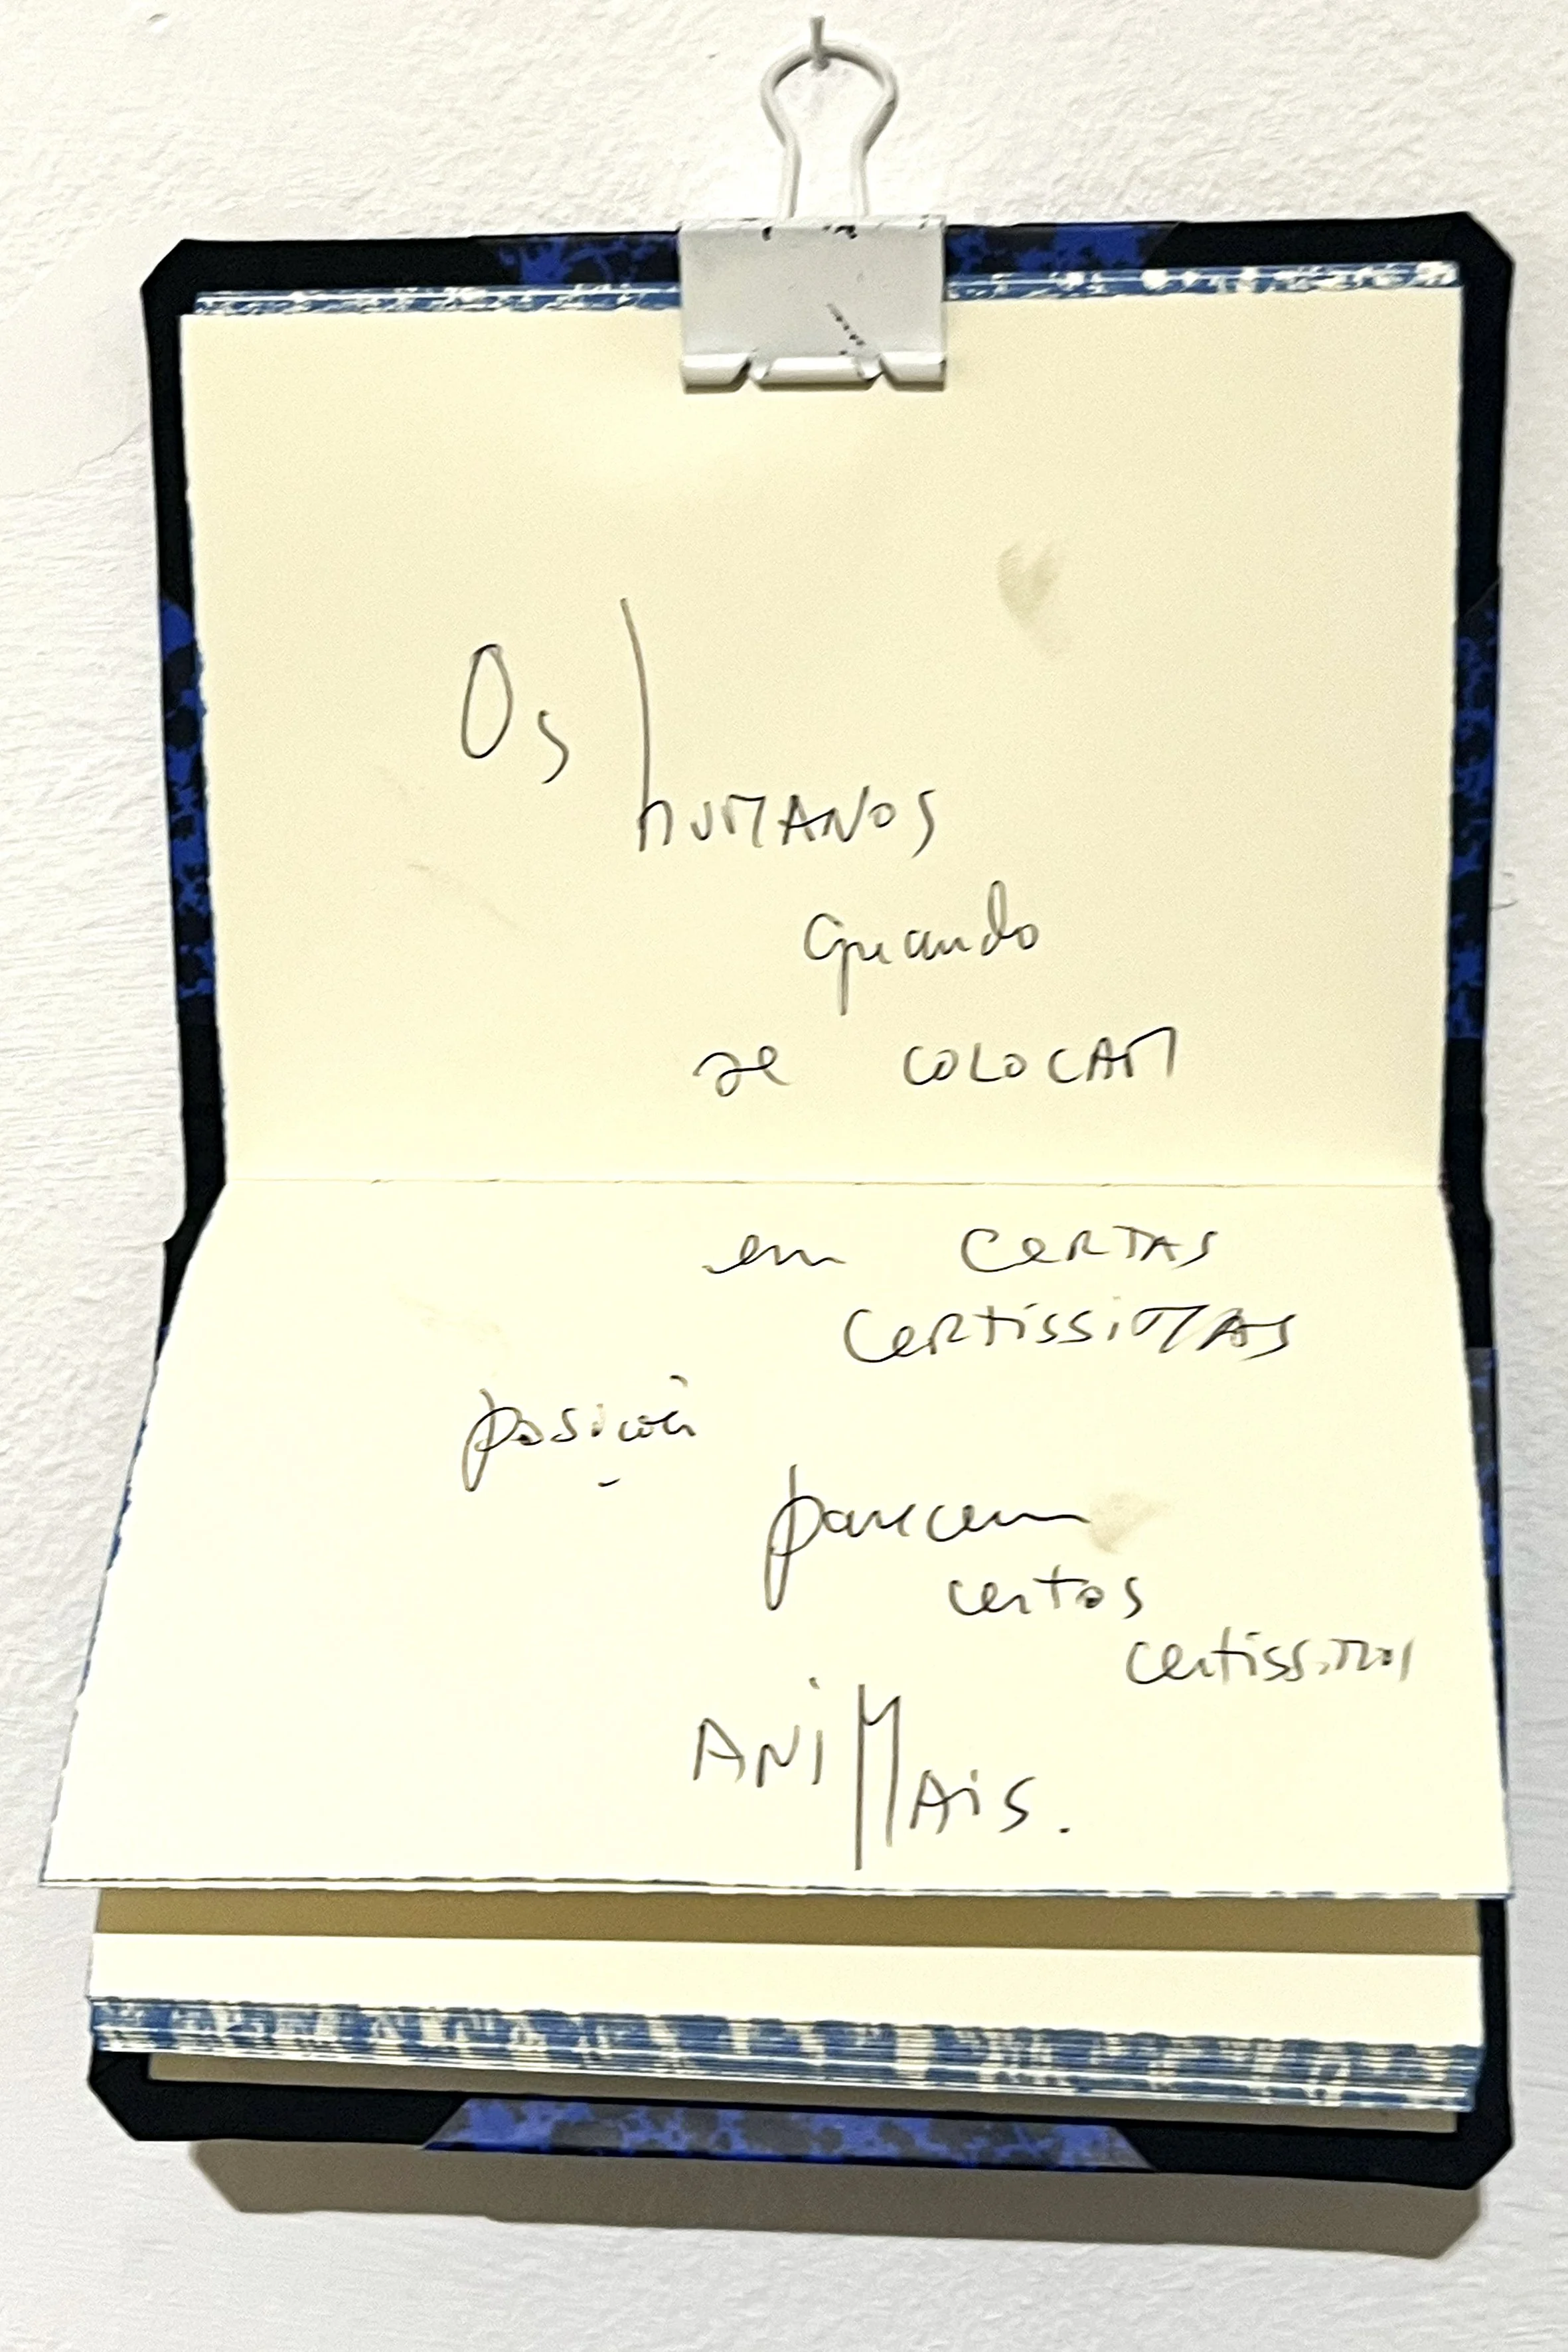 Os
humanos
quando
se colocam
em certas
certissimas
posições
parecem
certos
certissimos
ANiMAis.